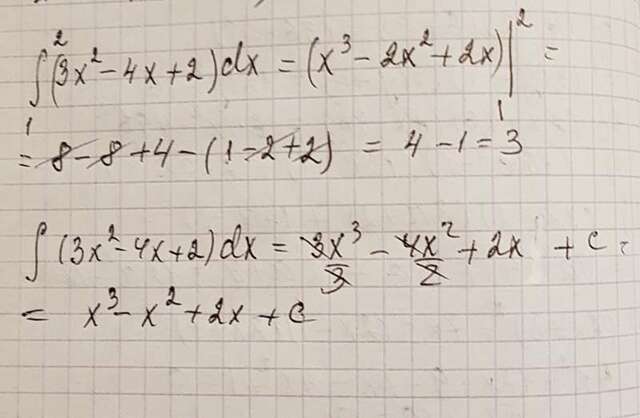 ∫₁² (3x² - 4x + 2) dx = (x³ - 2x² + 2x) |₁² =
= 8 - 8 + 4 - (1 - 2 + 2) = 4 - 1 = 3
∫ (3x² - 4x + 2) dx = 3x³/3 - 4x²/2 + 2x + c =
= x³ - x² + 2x + c